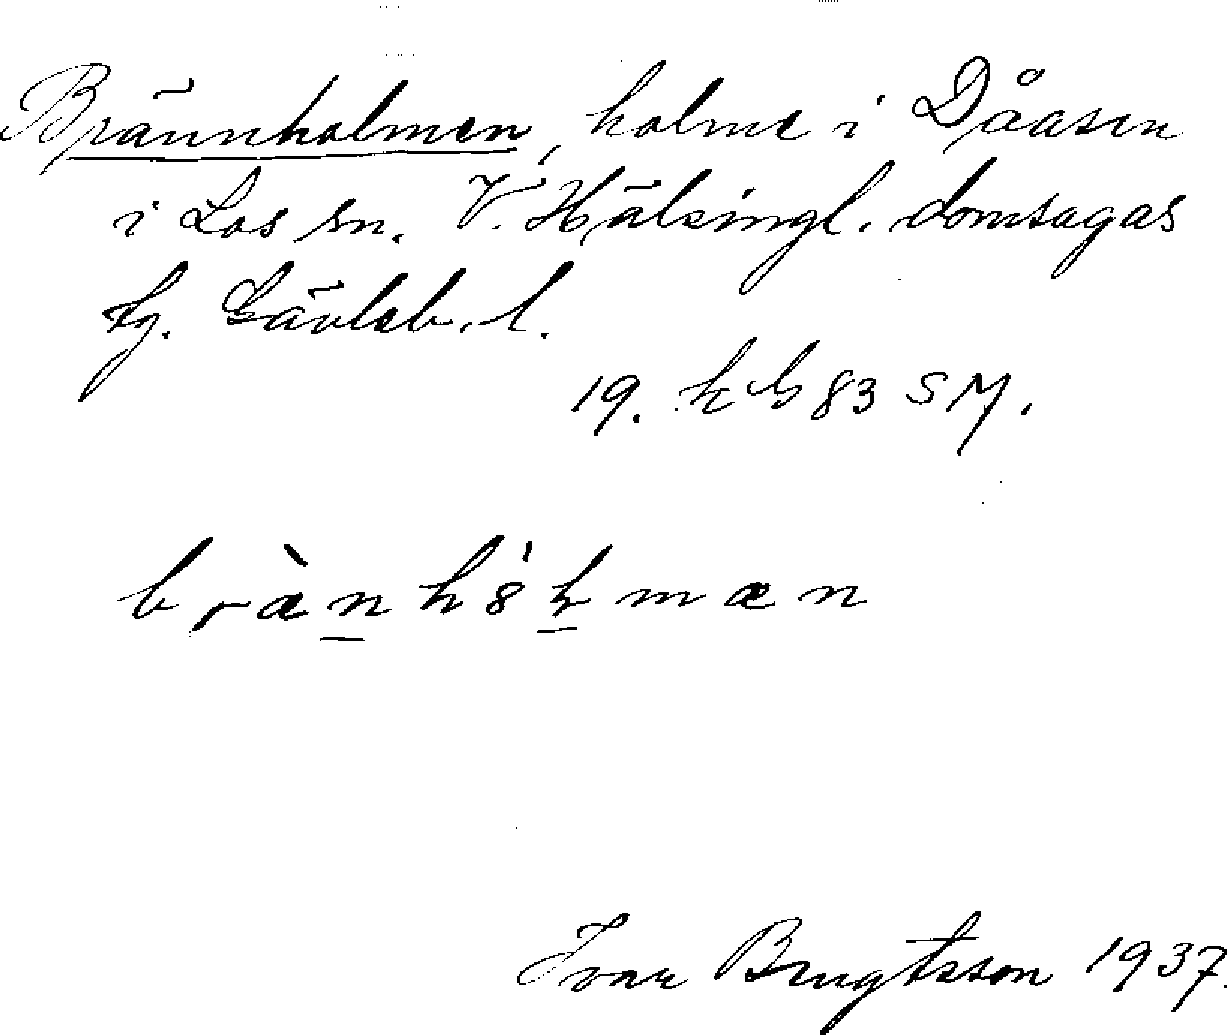 Brännholmen, holme i Dåasen
i Los sn. V. Hälsingl. domsagas
tg. Gävleb. l.
19. k G 83 SM.
brànhò̍ɫmæn
Ivar Bengtsson 1937.